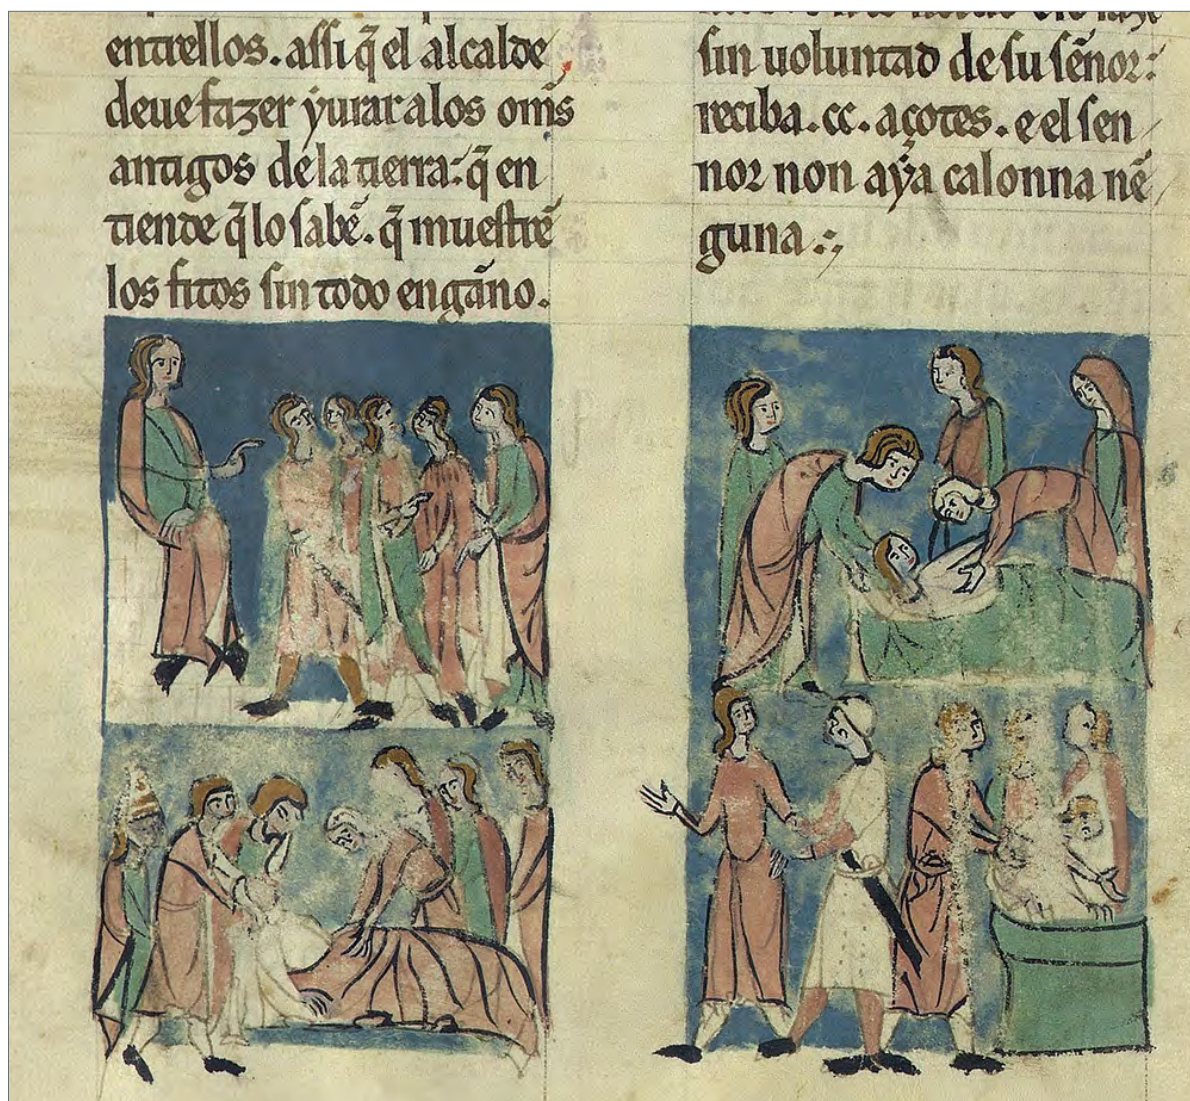 entrellos. assi q̃ el alcalde
deue fazer yurar alos om̃s
antigos de la tierra: q̃ en
tiende q̃ lo sabẽ. q̃ muestrẽ
los fitos sin todo engãno.
sin uoluntad de su sẽnor:
reciba .cc. açotes. e el sen
nor non aẏa calonna nẽ
guna :,